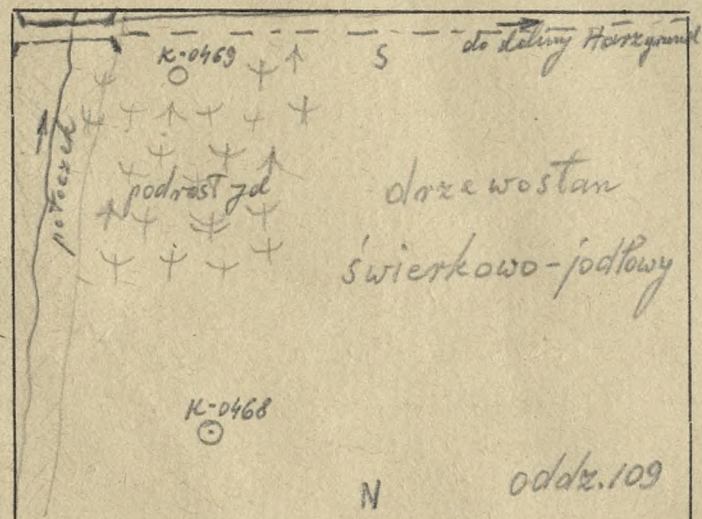 K-0469
S
do doliny Harzgrund
potoczek
podrost jd
drzewostan
świerkowo-jodłowy
K-0468
oddz.109
N